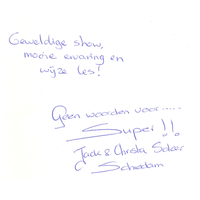 Geweldige show,
mooie ervaring en
wijze les!
Geen woorden voor.....
Super!!
Jack & Christa
Schiedam